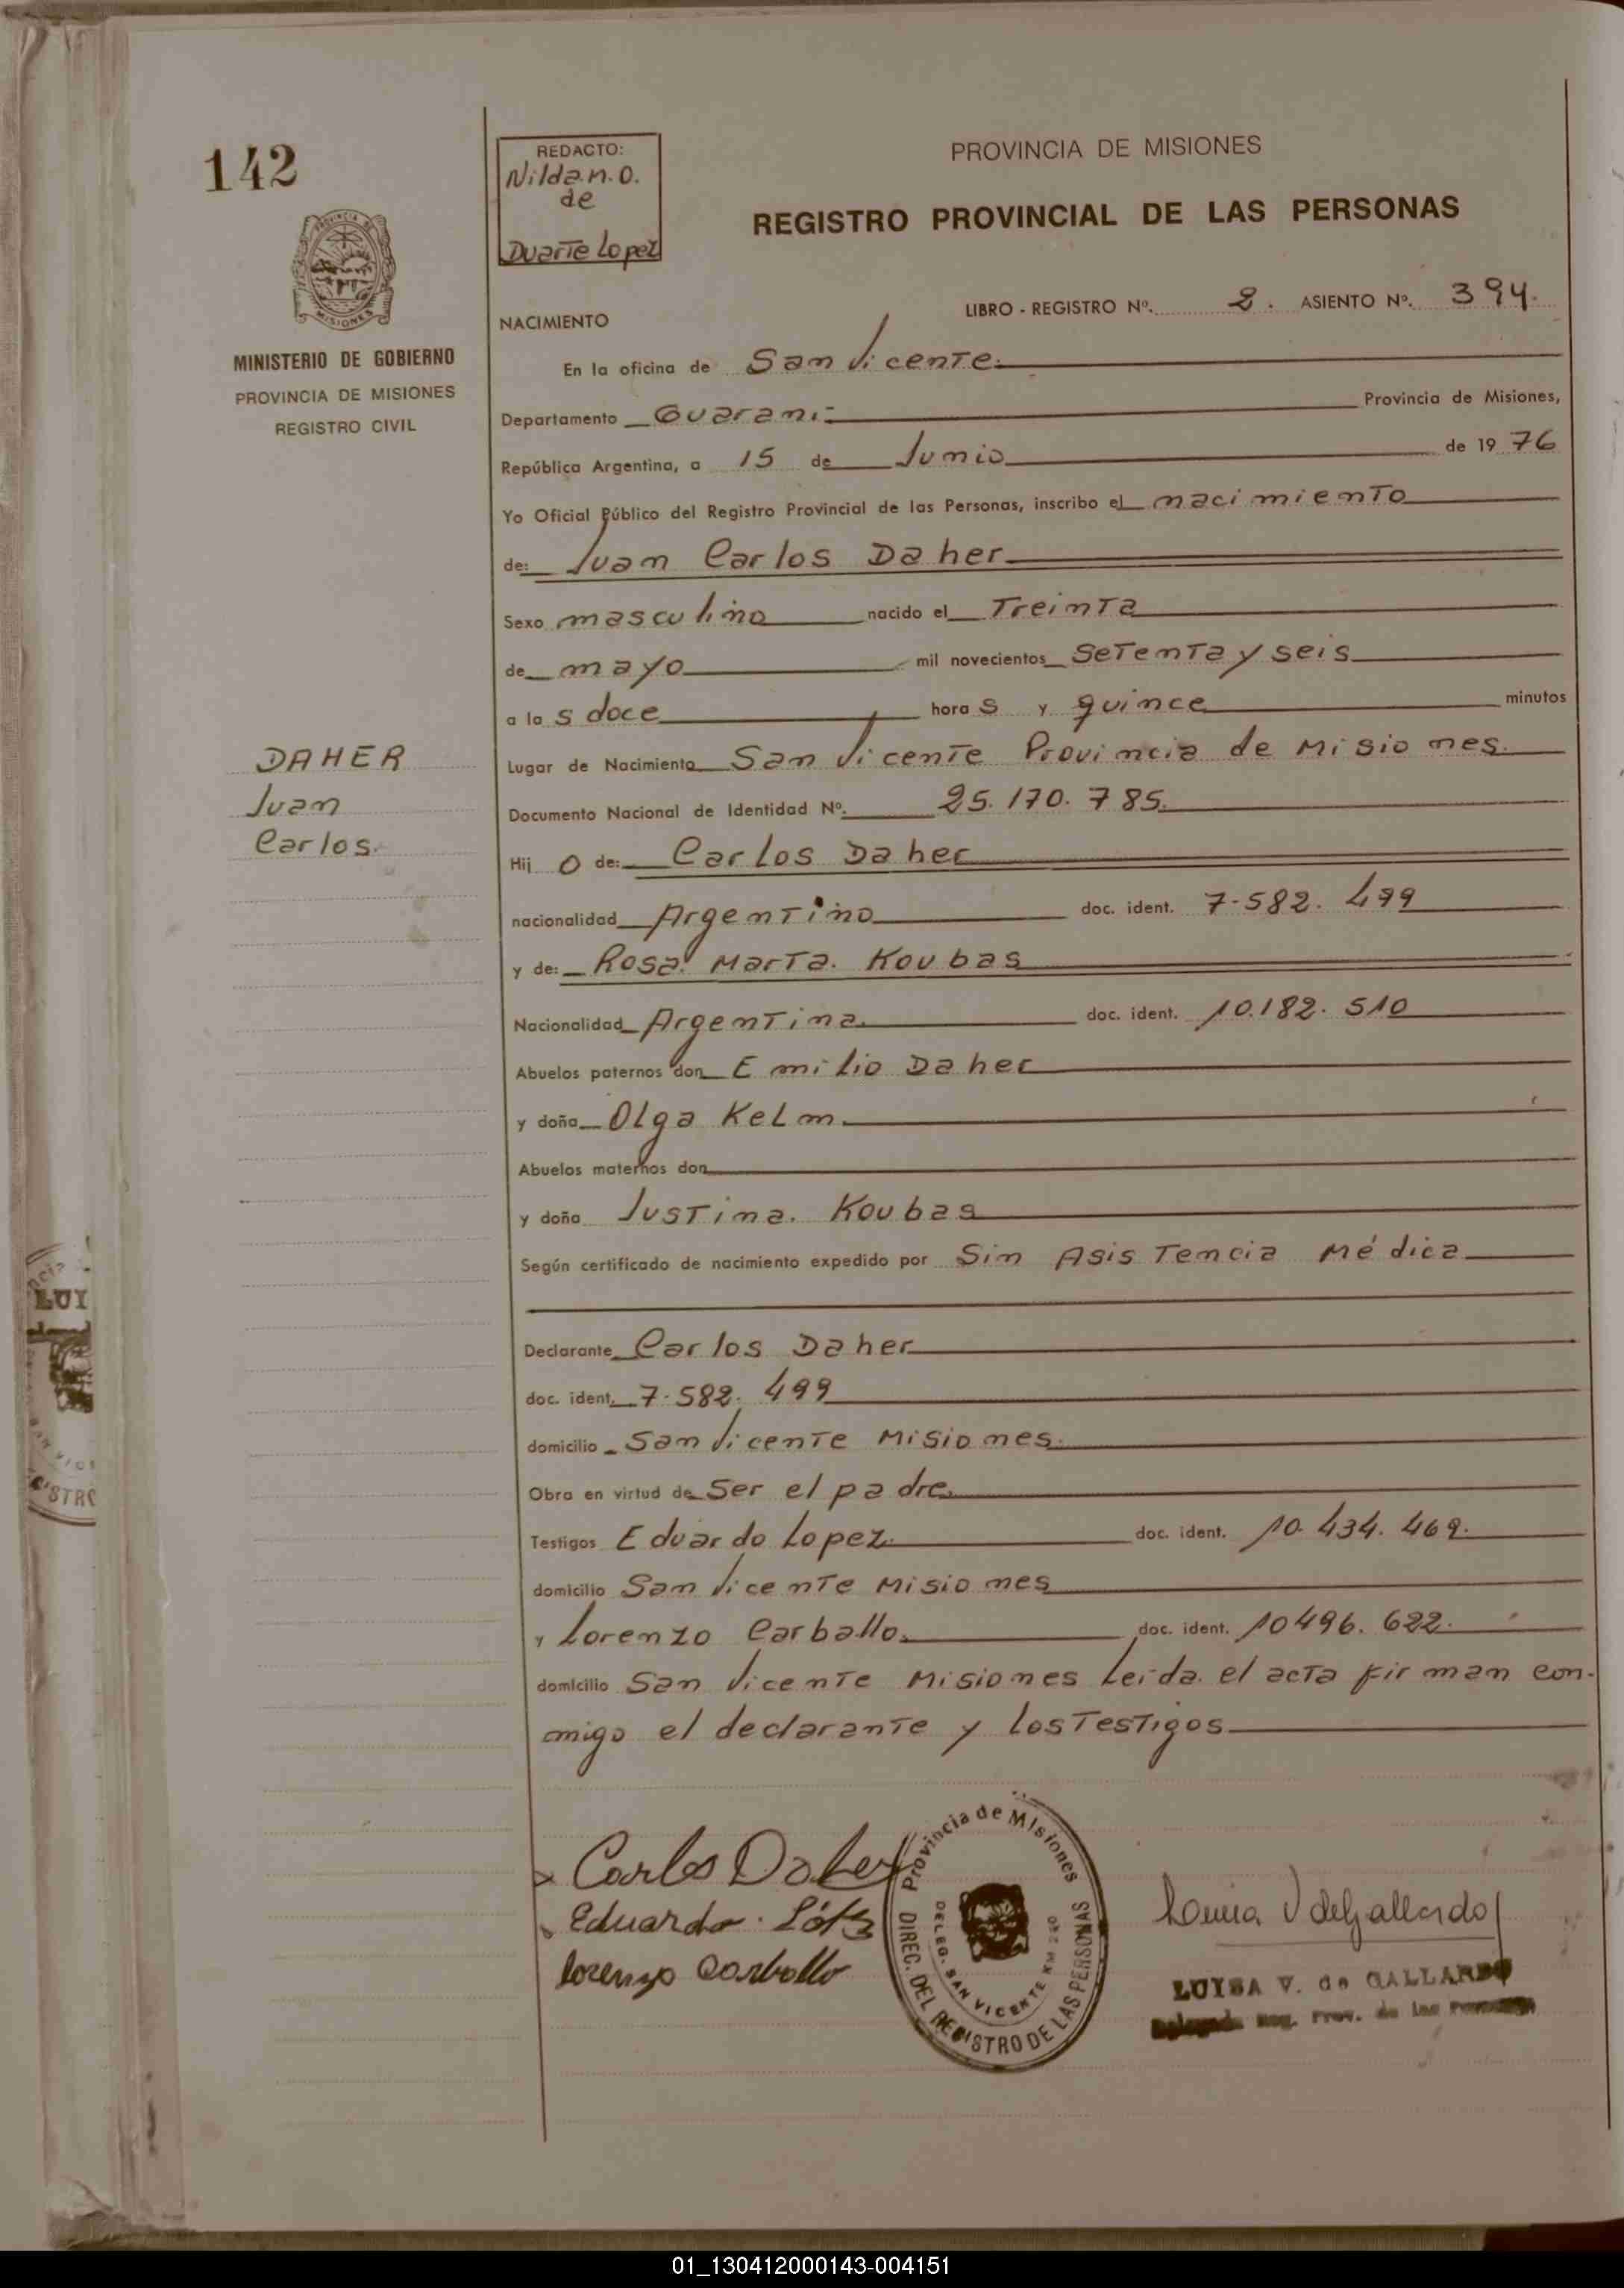 142
REDACTO:
Nilda.n.O.
de
Duarte Lopez
PROVINCIA DE MISIONES
REGISTRO PROVINCIAL DE LAS PERSONAS
MISIONES
MINISTERIO DE GOBIERNO
PROVINCIA DE MISIONES
REGISTRO CIVIL
LIBRO - REGISTRO Nº. 2. ASIENTO Nº. 394.
NACIMIENTO
En la oficina de San Vicente.
Departamento Guarani- Provincia de Misiones,
República Argentina, a 15 de Junio de 1976
Yo Oficial Público del Registro Provincial de las Personas, inscribo el nacimiento
de: Juan Carlos Daher
Sexo masculino nacido el Treinta
de mayo mil novecientos Setenta y seis
a las doce horas y quince minutos
Lugar de Nacimiento San Vicente Provincia de Misiones.
DAHER
Juan
Carlos.
Documento Nacional de Identidad Nº. 25.170.785.
Hijo de: Carlos Daher
nacionalidad Argentino doc. ident. 7-582.499
y de: Rosa Marta. Koubas
Nacionalidad Argentina. doc. ident. 10.182.510
Abuelos paternos don Emilio Daher
y doña Olga Kelm.
Abuelos maternos don
y doña Justina. Koubas
Según certificado de nacimiento expedido por Sin Asistencia Médica
Declarante Carlos Daher
doc. ident. 7-582.499
domicilio San Vicente Misiones.
Obra en virtud de Ser el padre.
Testigos Eduardo Lopez. doc. ident. 10.434.469.
domicilio San Vicente Misiones
y Lorenzo Carballo. doc. ident. 10496.622.
domicilio San Vicente Misiones Leida el acta firman con-
migo el declarante y los Testigos
Carlos Daher
Eduardo. López
lorenzo Carballo
Provincia de Misiones
DIREC. DEL REGISTRO DE LAS PERSONAS
DELEG. SAN VICENTE KM
LUISA V. de GALLARDO
Delegada Reg. Prov. de las Personas
LUI
01_130412000143-004151